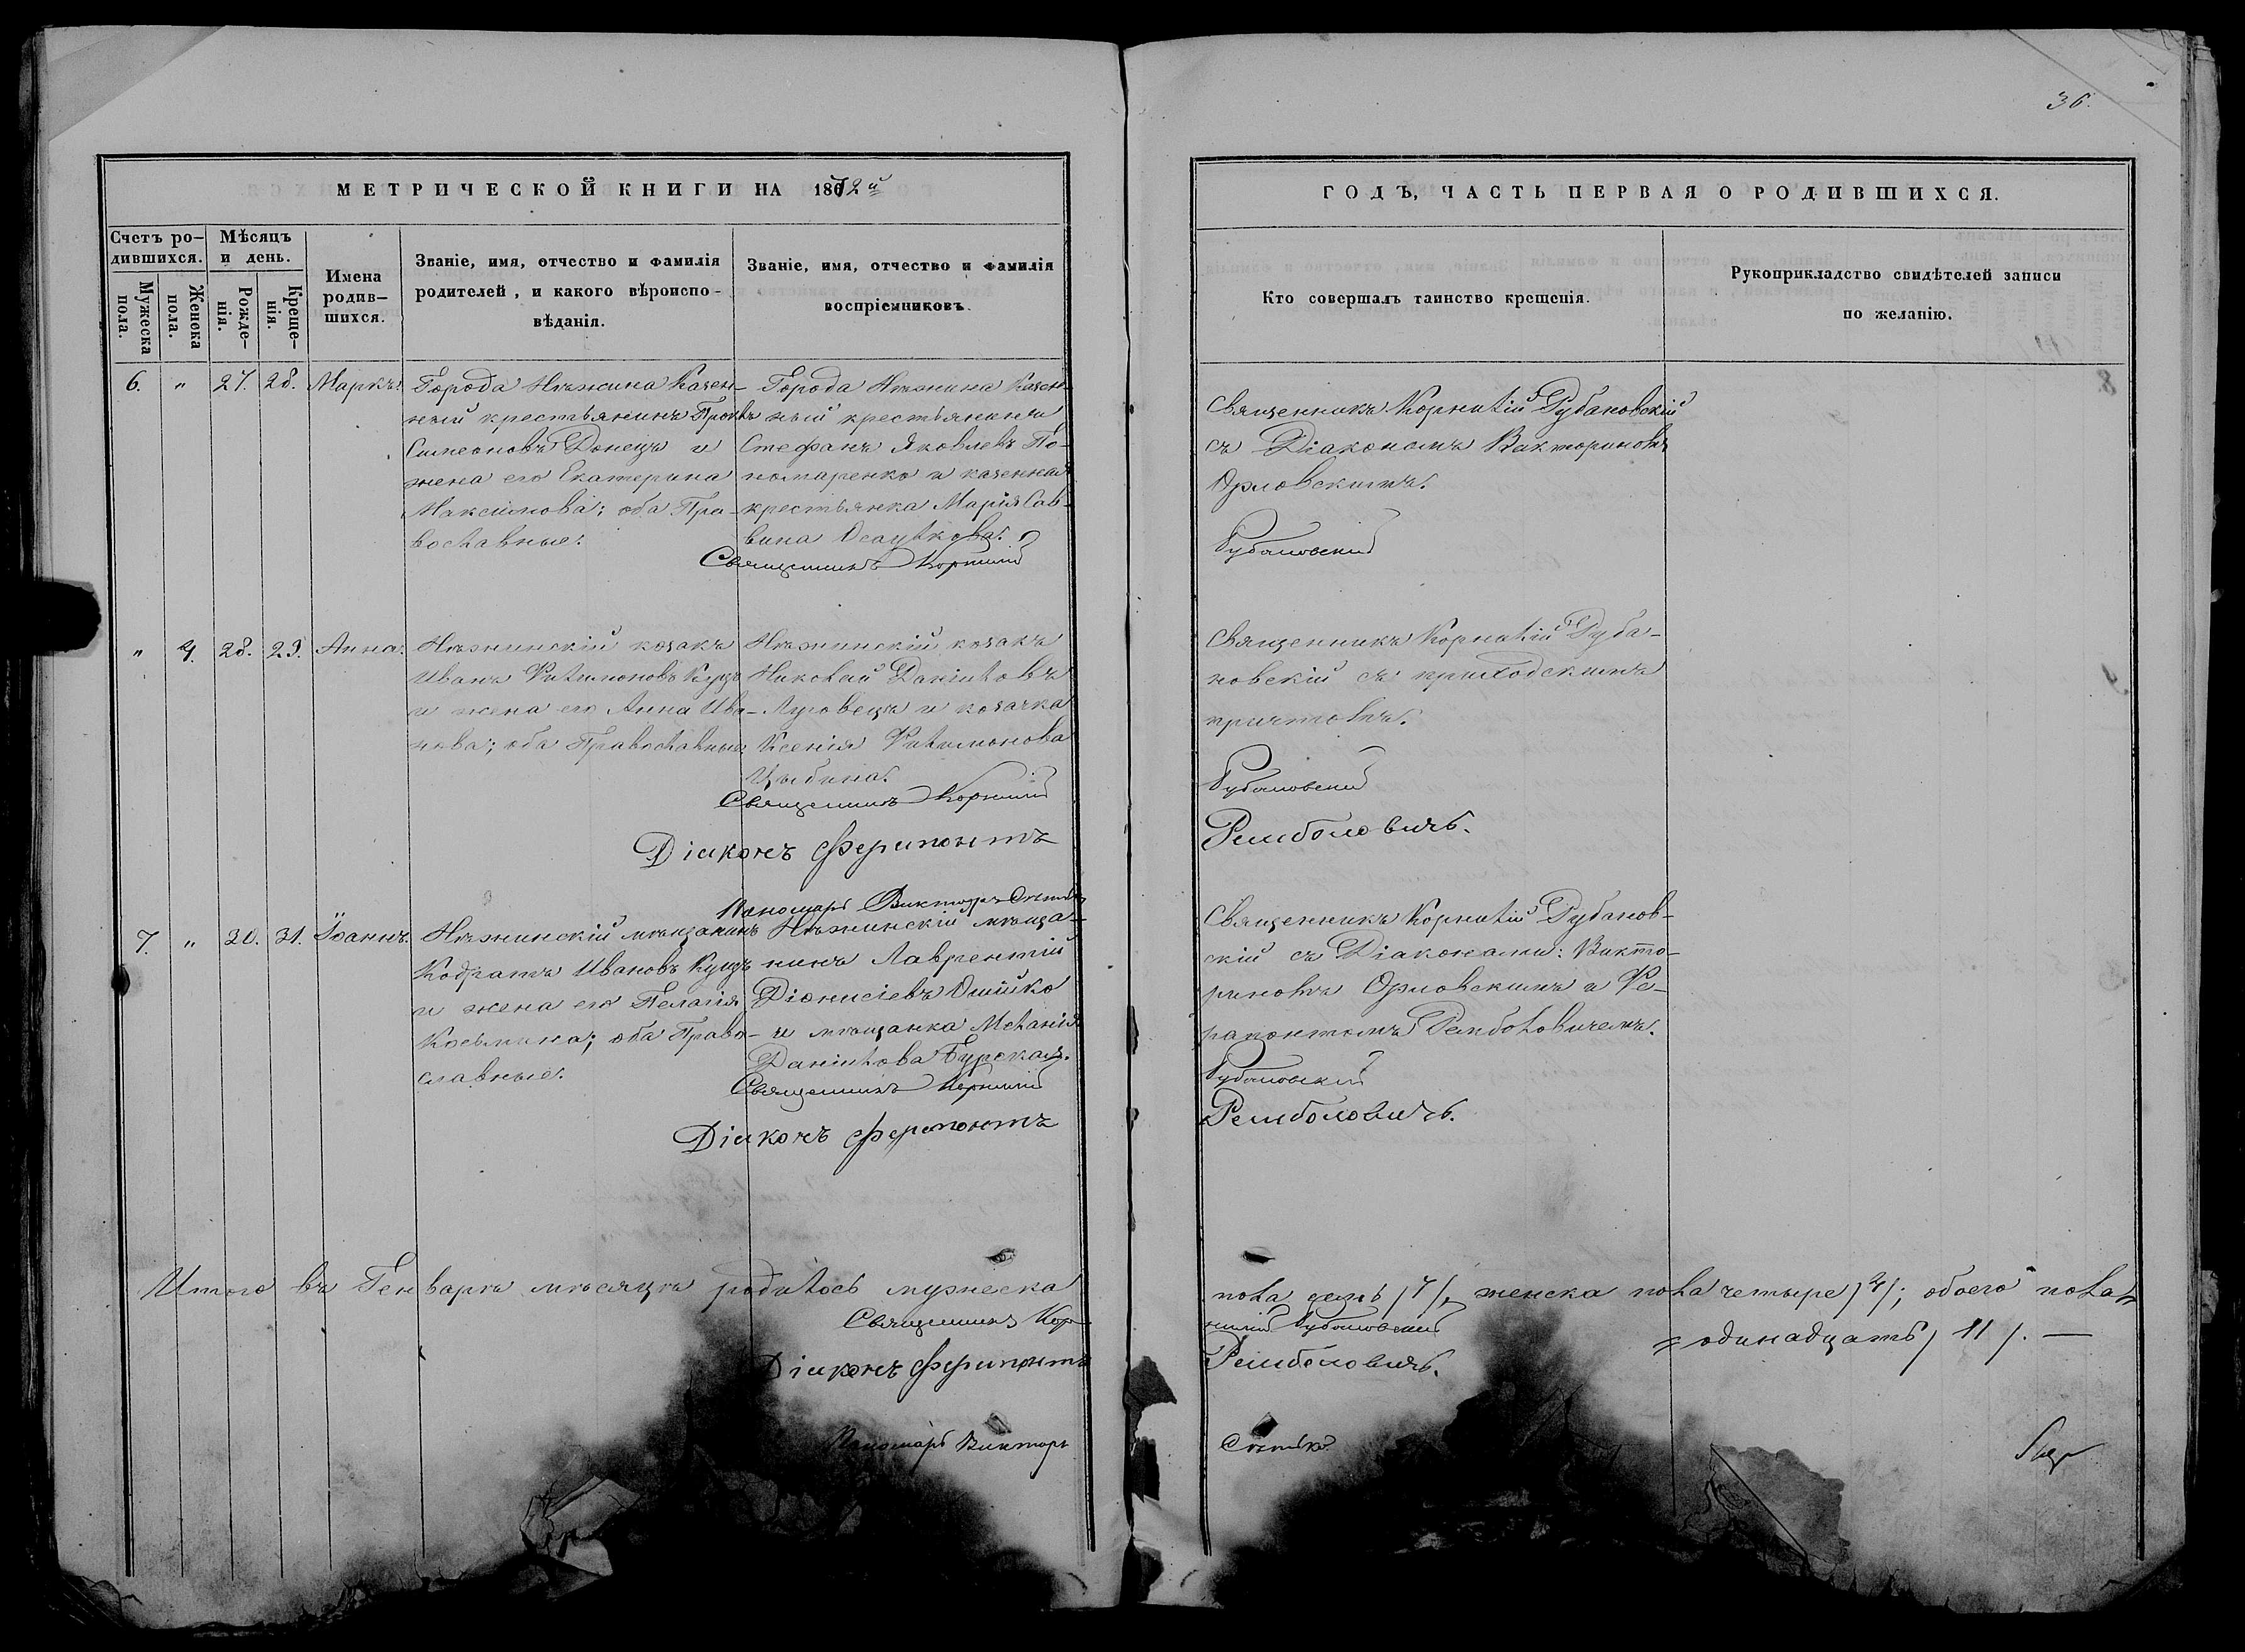 36.
МЕТРИЧЕСКОЙ КНИГИ НА 1872й
ГОДЪ, ЧАСТЬ ПЕРВАЯ О РОДИВШИХСЯ.
Счетъ ро-
дившихся.
Мужеска
пола.
Женска
пола.
Мѣсяцъ
и день.
Рожде-
нія.
Креще-
нія.
Имена
родив-
шихся.
Званіе, имя, отчество и фамилія
родителей, и какого вѣроиспо-
вѣданія.
Званіе, имя, отчество и фамилія
воспріемниковъ.
Кто совершалъ таинство крещенія.
Рукоприкладство свидѣтелей записи
по желанію.
6. " 27. 28. Маркъ.
Города Нѣжина Казен-
ный крестьянинъ Прокопъ
Симеоновъ Донецъ и
жена его Екатерина
Максимова; оба Пра-
вославные.
Города Нѣжина Казен-
ный крестьянинъ
Стефанъ Яковлевъ По-
номаренко и казенная
крестьянка Марія Сав-
вина
Священникъ Корнилій
Священникъ Корнилій Рубановскій
съ Діакономъ Викториномъ
Орловскимъ.
Рубановскій
" 4. 28. 29. Анна.
Нѣжинскій козакъ
Иванъ Филимоновъ Куцъ
и жена его Анна Ива-
нова; оба Православные
Нѣжинскій козакъ
Николай Даніиловъ
Луговецъ и козачка
Ксенія Филимонова
Цыбина.
Священникъ Корнилій
Діаконъ Ферапонтъ
Пономарь Викторъ Ситько
Священникъ Корнилій Руба-
новскій съ приходскимъ
причтомъ.
Рубановскій
Рембаловичъ.
7. " 30. 31. Іоаннъ.
Нѣжинскій мѣщанинъ
Кодратъ Ивановъ Куцъ
и жена его Пелагія
Косьмина; оба Право-
славные.
Нѣжинскій мѣща-
нинъ Лаврентій
Діонисіевъ Онишко
и мѣщанка Меланія
Даніилова Бурская.
Священникъ Корнилій
Діаконъ Ферапонтъ
Священникъ Корнилій Рубанов-
скій съ Діаконами: Викто-
риномъ Орловскимъ и Фе-
рапонтомъ Рембаловичемъ.
Рубановскій
Рембаловичъ.
Итого въ Генварѣ мѣсяцѣ родилось мужеска
пола семь /7/, женска пола четыре /4/; обоего пола
одинадцать / 11 /. —
Священникъ Кор-
нилій Рубановскій
Діаконъ Ферапонтъ
Рембаловичъ.
Пономарь Викторъ
Ситько